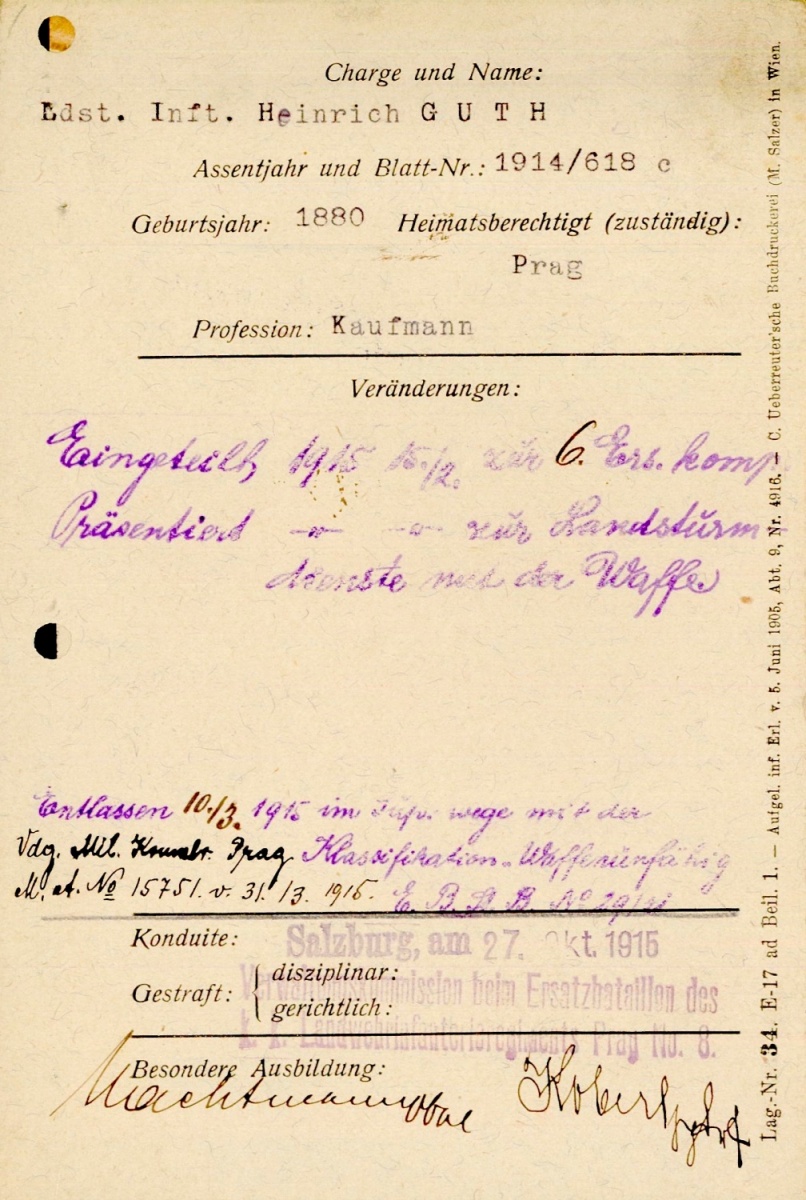 Charge und Name:
Ldst. Inft. Heinrich G U T H
Assentjahr und Blatt-Nr.: 1914/618 c
Geburtsjahr: 1880 Heimatsberechtigt (zuständig):
Prag
Profession: Kaufmann
Veränderungen:
Eingeteilt, 1915 15./2. zur 6. Ers. komp.
Präsentiert -"- -"- zur Landsturm-
dienste mit der Waffe
Entlassen 10./3. 1915 im wege mit der
Vdg. Mil. Prag Klassifikation "Waffenunfähig
M. A. No 15751. v. 31./3. 1915. E. B. No
Konduite:
Gestraft: { disziplinar:
gerichtlich:
Salzburg, am 27. Okt. 1915
Verwaltungskommission beim Ersatzbataillon des
k. k. Landwehrinfanterieregiments Prag No. 8.
Besondere Ausbildung:
Lag.-Nr. 34. E-17 ad Beil. 1. — Aufgel. inf. Erl. v. 5. Juni 1905, Abt. 9, Nr. 4916. — C. Ueberreuter'sche Buchdruckerei (M. Salzer) in Wien.